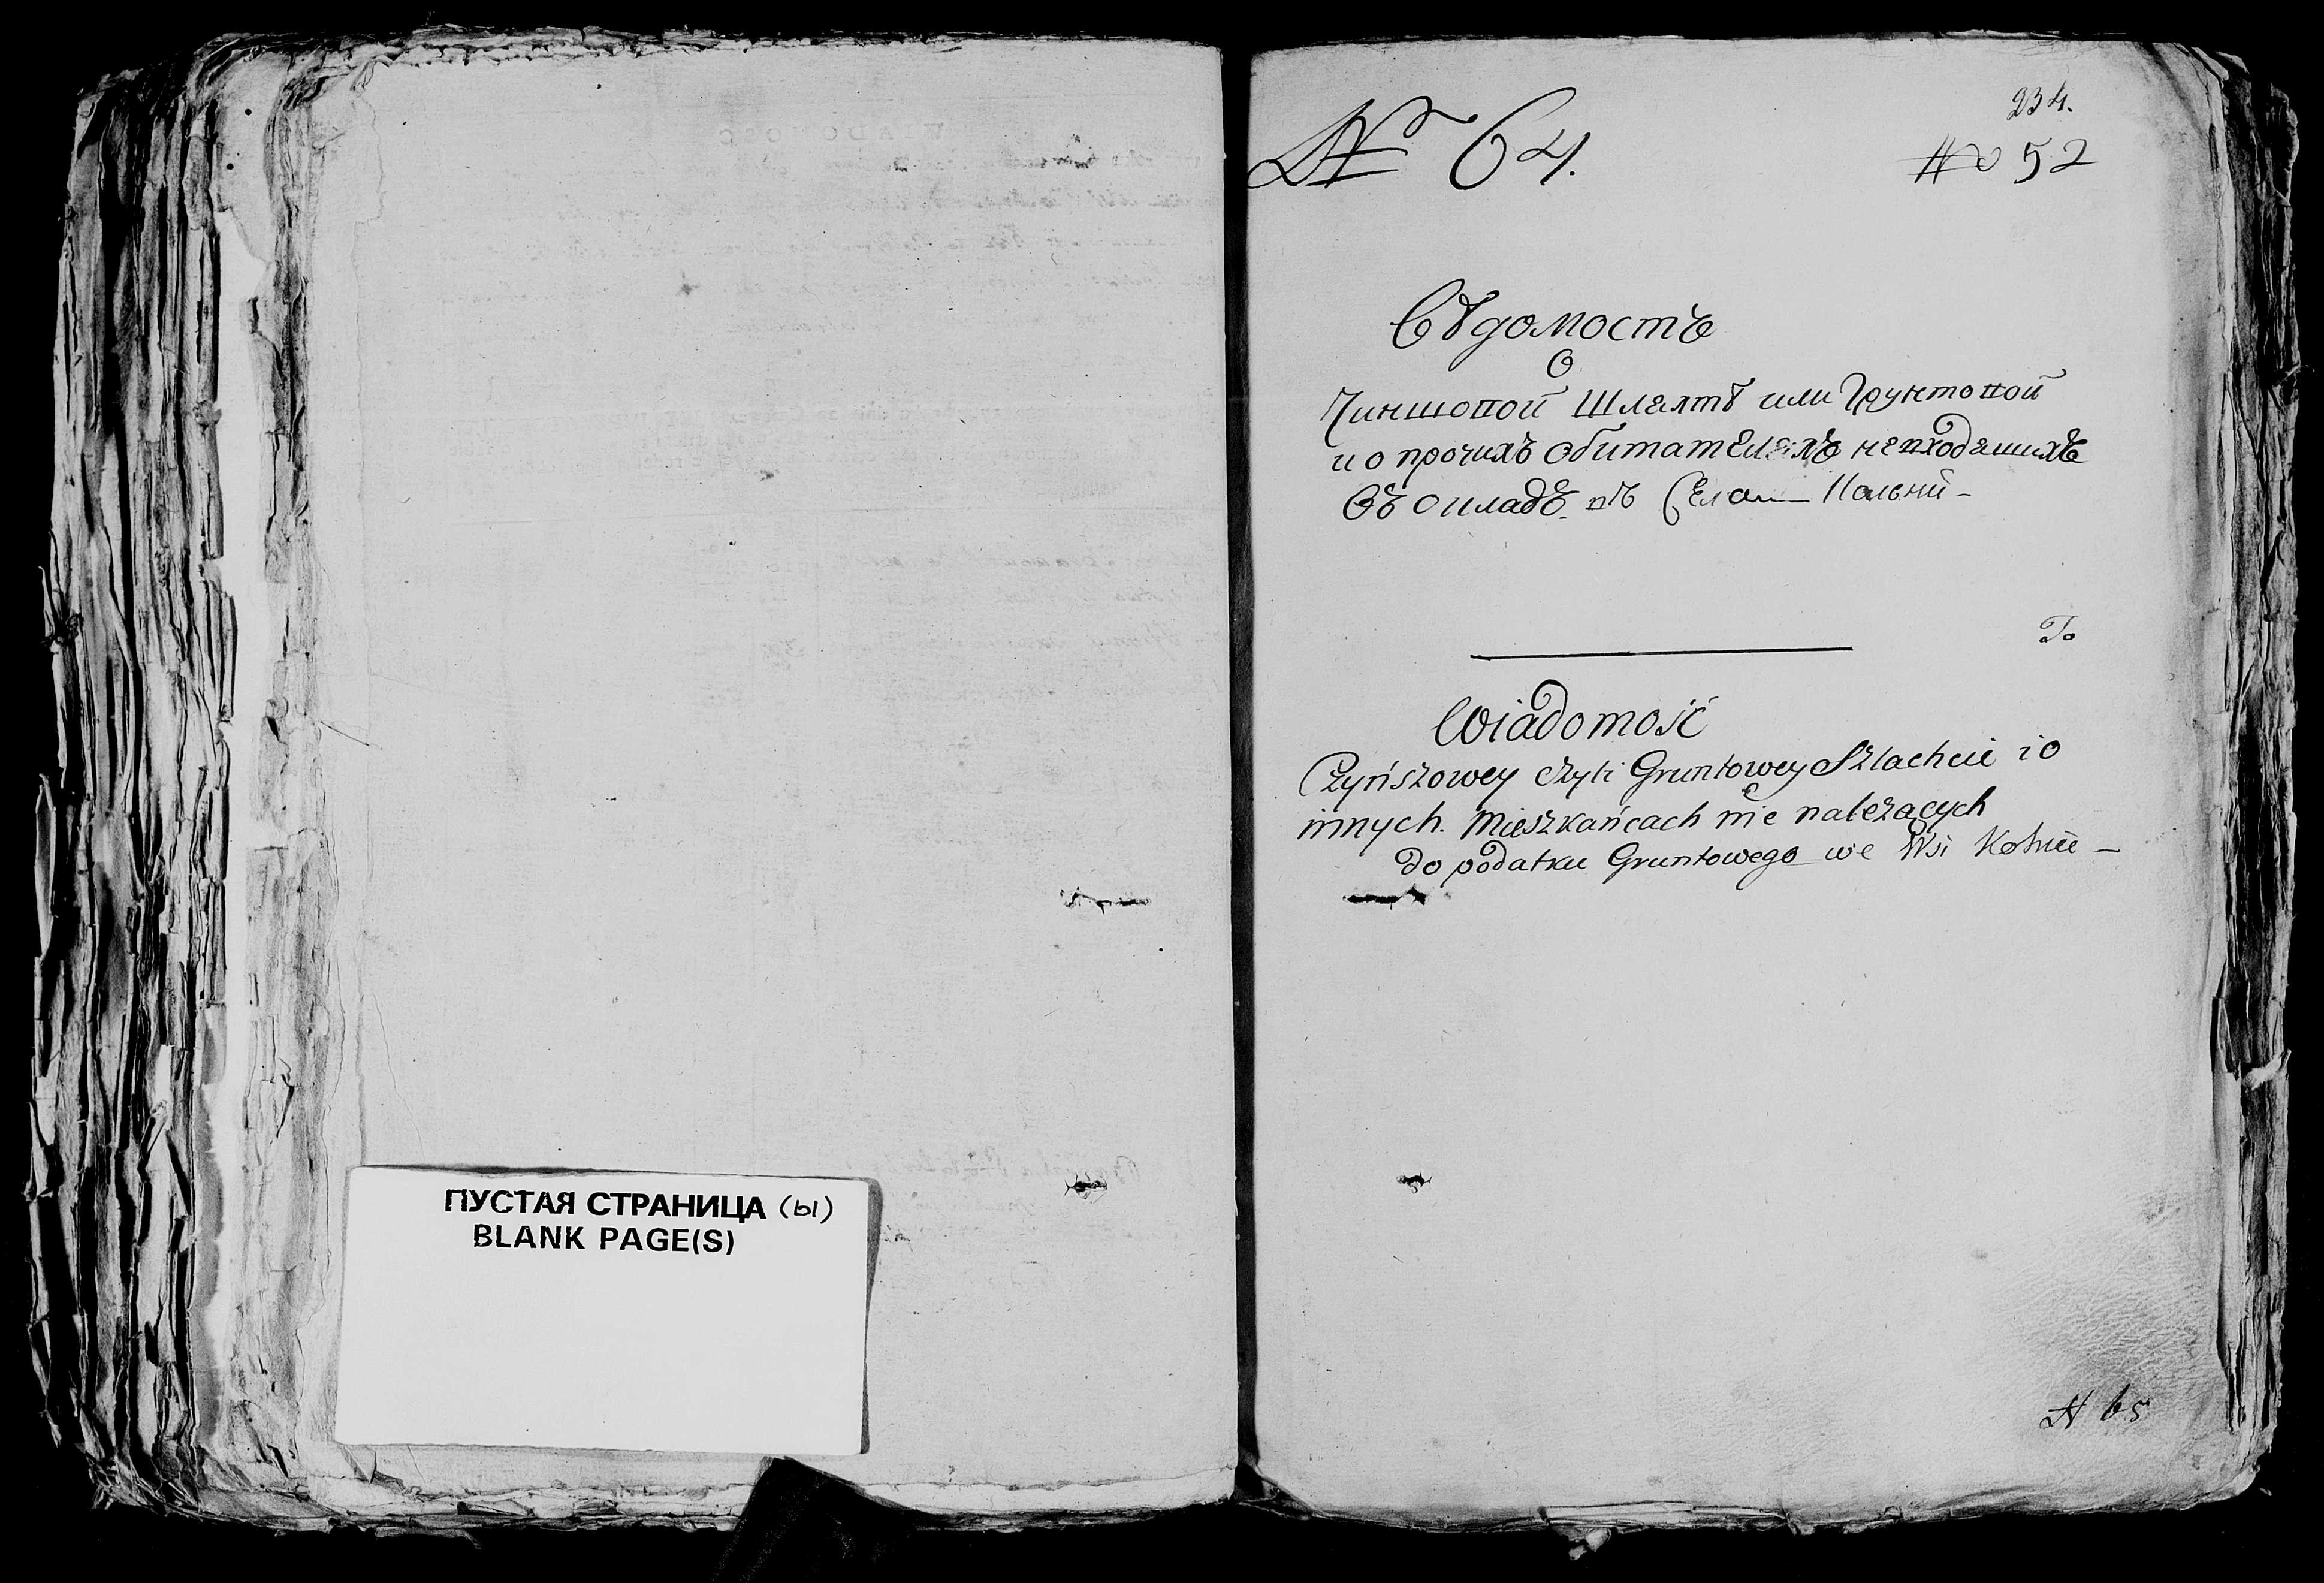 ПУСТАЯ СТРАНИЦА (ы)
BLANK PAGE(S)
234.
№ 64.
№ 52
Вѣдомость
О
Чиншовой Шляхтѣ или Грунтовой
и о прочихъ обитателяхъ невходящихъ
Въ окладъ въ
Wiadomość
Czyńszowey czyli Gruntowey Szlachcie i o
innych. Mieszkańcach nie należących
do podatku Gruntowego we Wsi
N 65